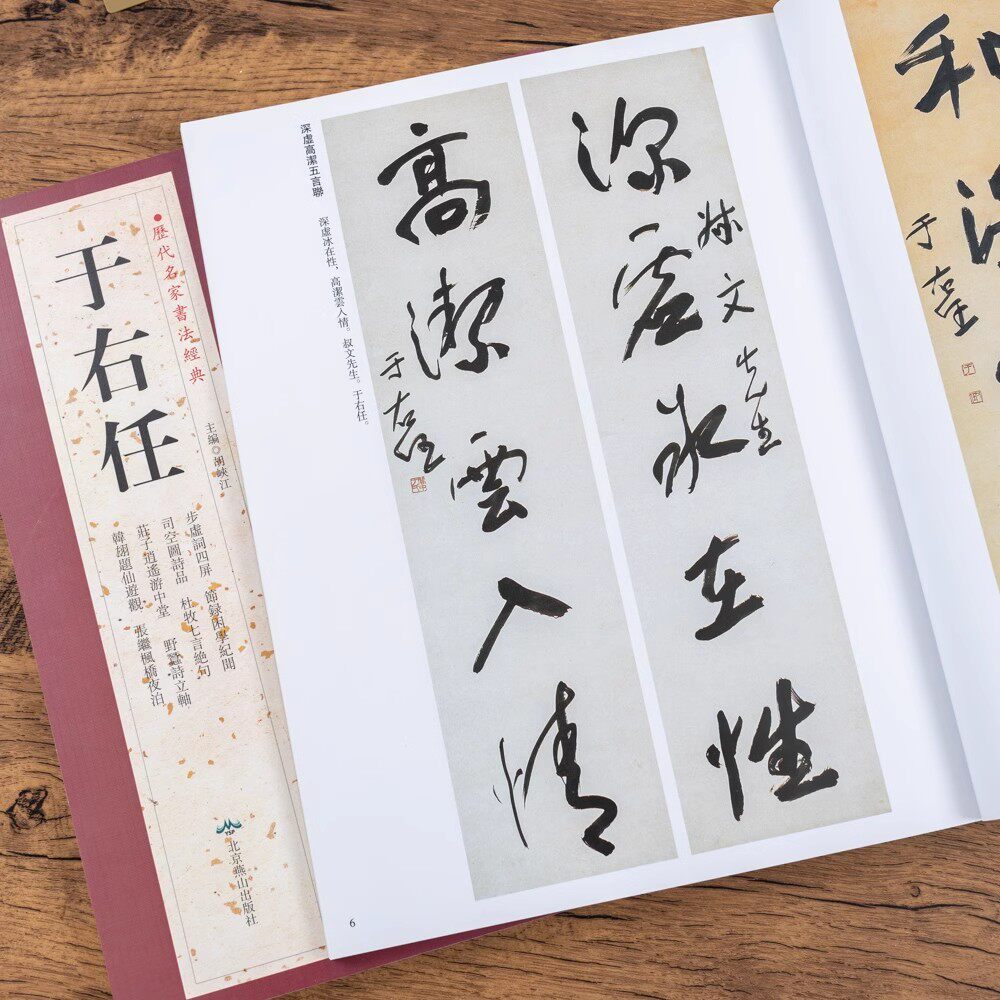 ●歷代名家書法經典
于右任
主編◎胡峽江
步虛詞四屏 節録困學紀聞
司空圖詩品 杜牧七言絶句
莊子逍遙游中堂 野蠶詩立軸
韓翃題仙遊觀 張繼楓橋夜泊
YSP
北京燕山出版社
深虛高潔五言聯
深虛冰在性，高潔雲入情。叔文先生。于右任。
深虛冰在性
叔文先生
高潔雲入情
于右任
6
和
于右任